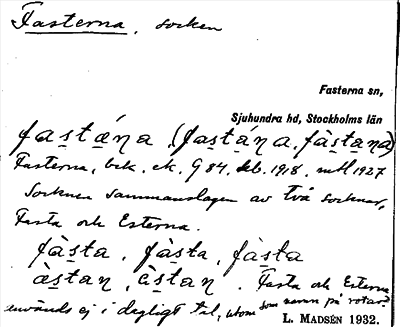 Fasterna, socken
Fasterna sn,
Sjuhundra hd, Stockholms län
fastá̱na, (fastá̱na, fàsta̱na)
Fasterna, bck. ck. G 84, feb. 1918, mtl 1927
Socknen sammanslagen av två socknar,
Fasta och Esterna.
fàsta, fàsta, fàsta
àstan, èstan. Fasta och Esterna
användes ej i dagligt tal, utom som namn på rotar.
L. MADSÉN 1932.